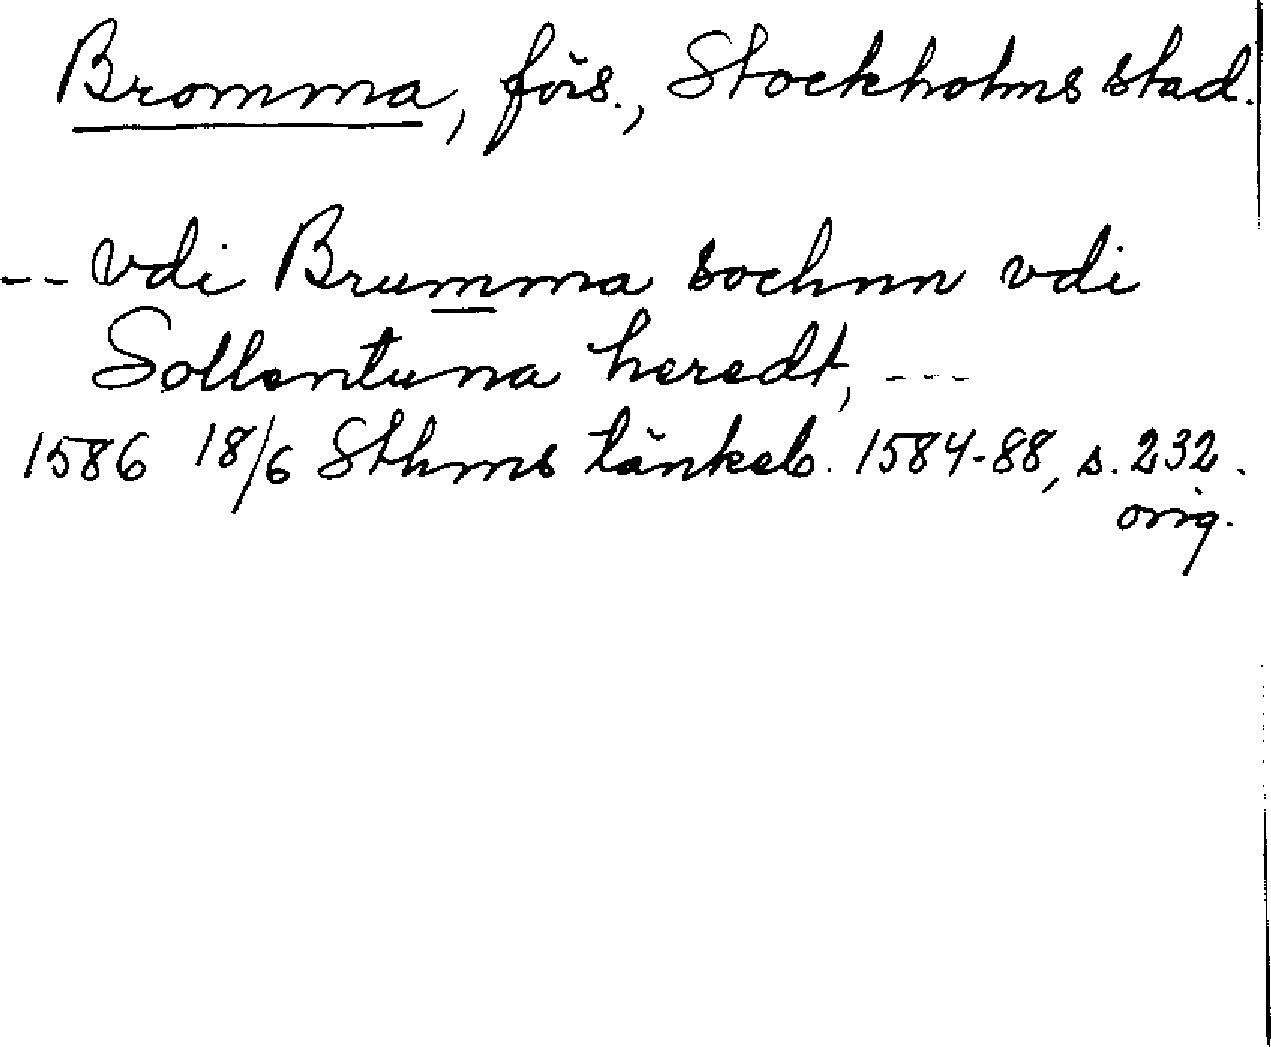 Bromma, förs., Stockholms stad.
-- vdi Brumma sochnn vdi
Sollentuna heredt, ---
1586 18/6 Sthms tänkeb. 1584-88, s. 232.
orig.